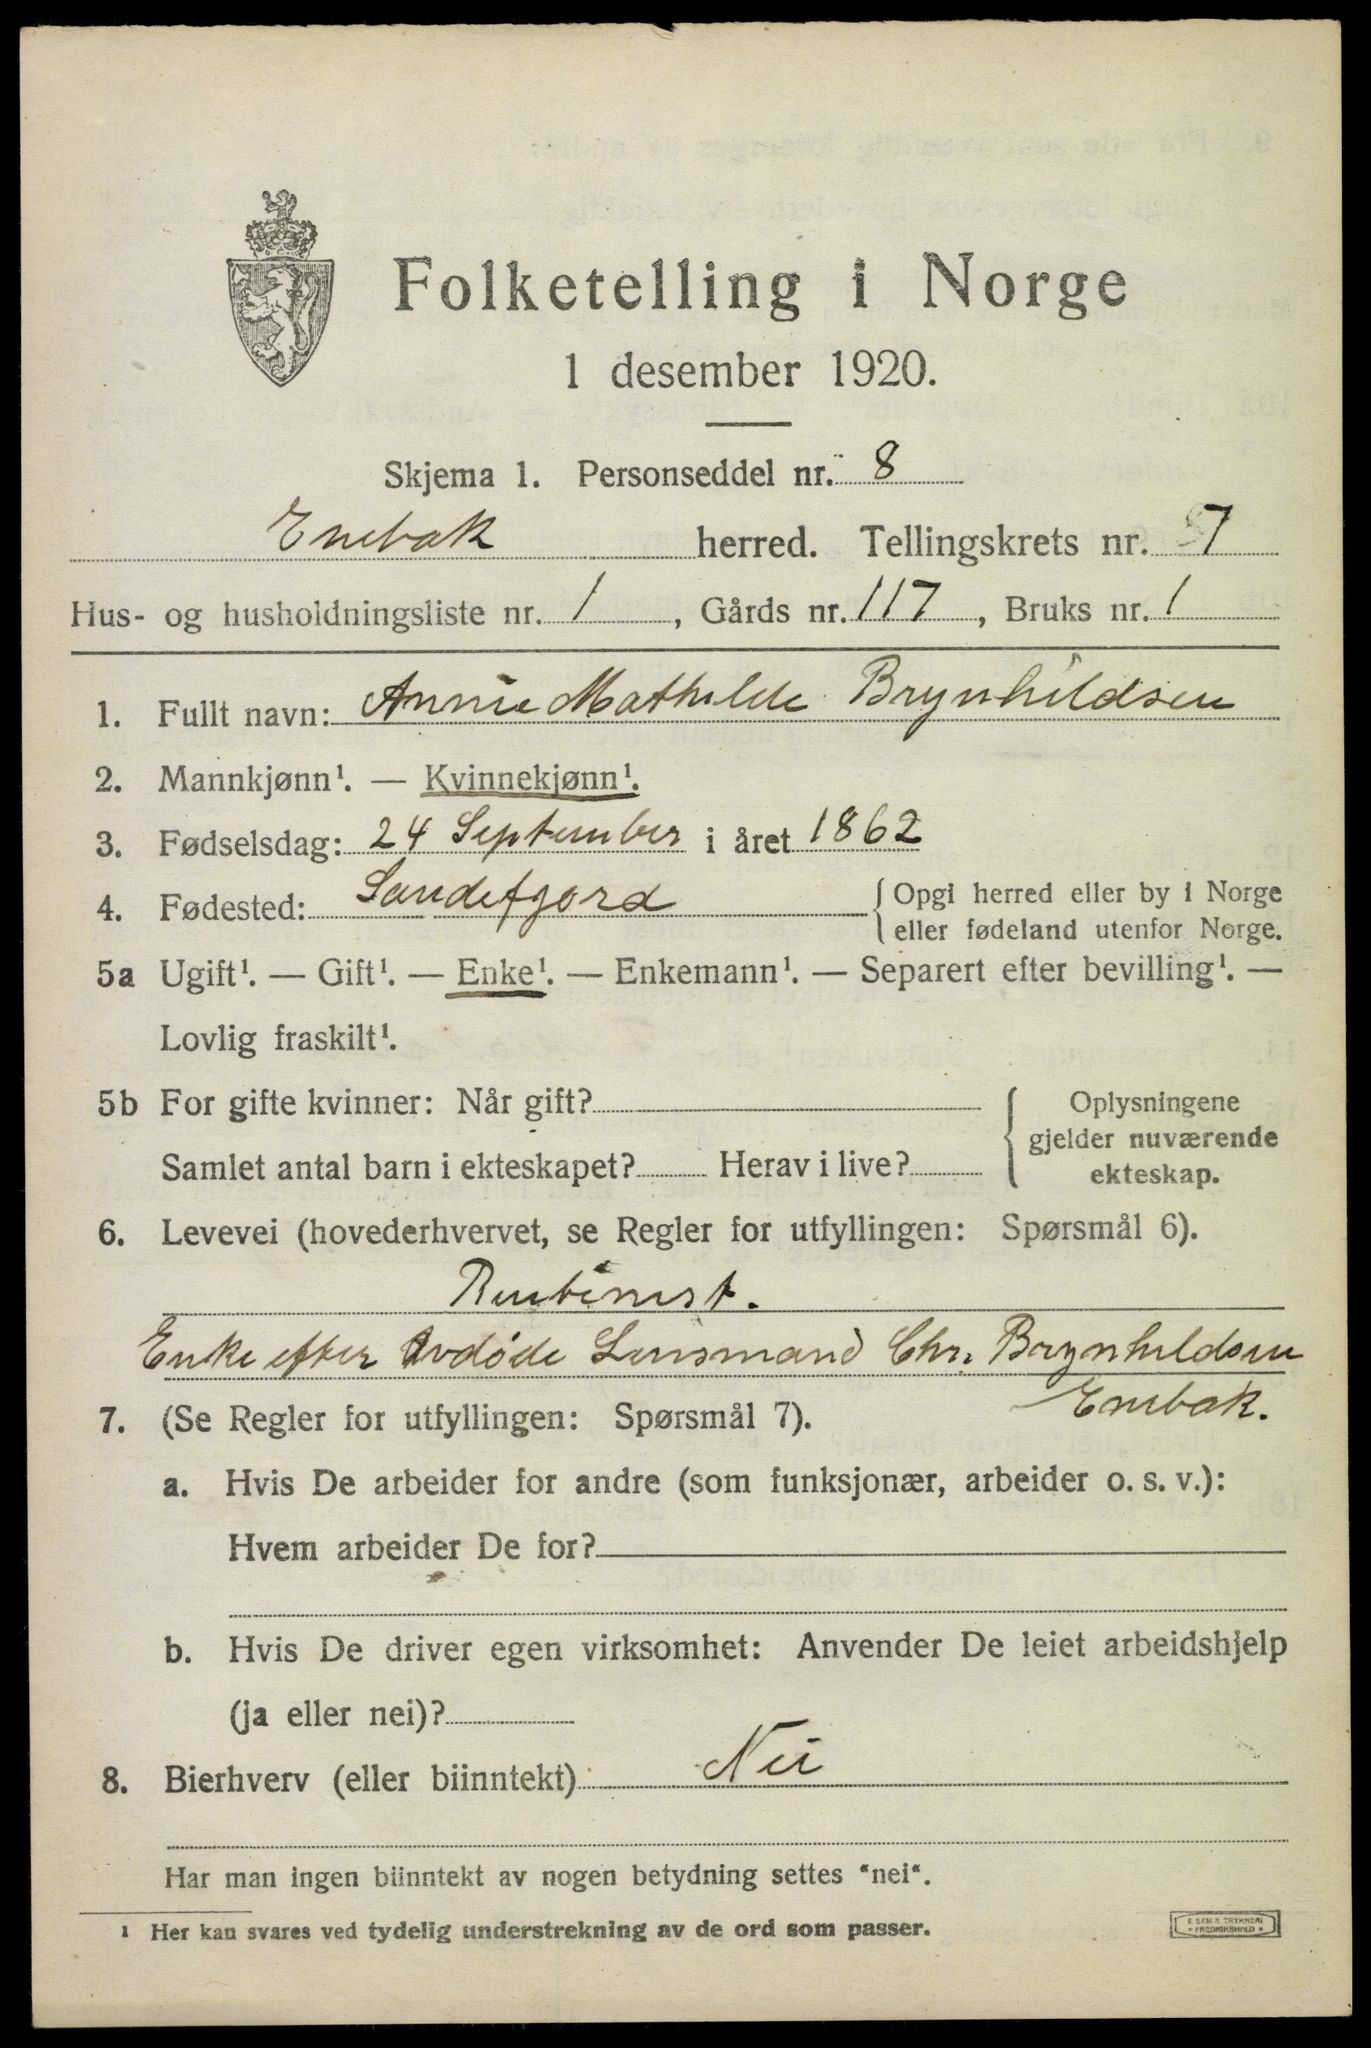 Folketelling i Norge
1 desember 1920.
Skjema 1. Personseddel nr. 8
Enebak herred. Tellingskrets nr. 7
Hus- og husholdningsliste nr. 1, Gårds nr. 117, Bruks nr. 1
1. Fullt navn: Annie Mathilde Brynhildsen
2. Mannkjønn¹. — Kvinnekjønn¹.
3. Fødselsdag: 24 September i året 1862
4. Fødested: Sandefjord { Opgi herred eller by i Norge
eller fødeland utenfor Norge.
5a Ugift¹. — Gift¹. — Enke¹. — Enkemann¹. — Separert efter bevilling¹. —
Lovlig fraskilt¹.
5b For gifte kvinner: Når gift? { Oplysningene
gjelder nuværende
Samlet antal barn i ekteskapet? Herav i live? ekteskap.
6. Levevei (hovederhvervet, se Regler for utfyllingen: Spørsmål 6).
Rentenist.
Enke efter Avdöde Lensmand Chr. Brynhildsen
Enebak.
7. (Se Regler for utfyllingen: Spørsmål 7).
a. Hvis De arbeider for andre (som funksjonær, arbeider o. s. v.):
Hvem arbeider De for?
b. Hvis De driver egen virksomhet: Anvender De leiet arbeidshjelp
(ja eller nei)?
8. Bierhverv (eller biinntekt) Nei
Har man ingen biinntekt av nogen betydning settes “nei“.
¹ Her kan svares ved tydelig understrekning av de ord som passer.
E. SEM'S TRYKKERI
* FREDRIKSHALD *